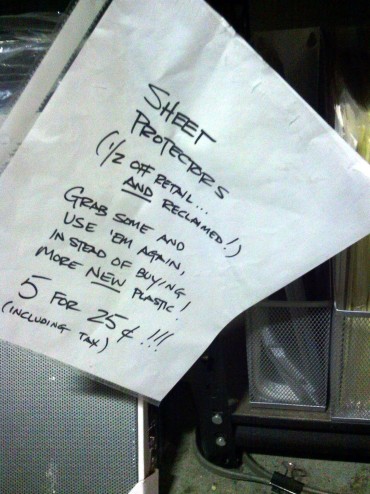 SHEET
PROTECTORS
(1/2 OFF RETAIL...
AND RECLAIMED!)
GRAB SOME AND
USE 'EM AGAIN,
INSTEAD OF BUYING
MORE NEW PLASTIC!
5 FOR 25¢!!!
(INCLUDING TAX)